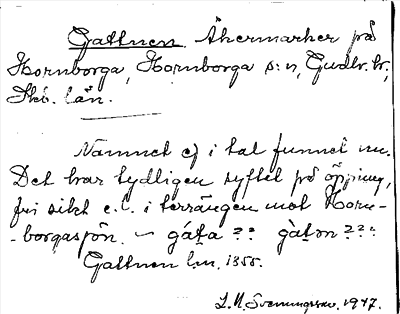 Gattnen Åkermarker på
Hornborga, Hornborga s:n, Gudh. hr,
Skb. län.
Namnet ej i tal funnet nu.
Det har tydligen syftet på öppning,
fri sikt e.l. i terrängen mot Horn-
-borgasjön. – gáta ?? gàtən ???
Gattnen lm. 1355.
L. M. Svenungsson. 1947.